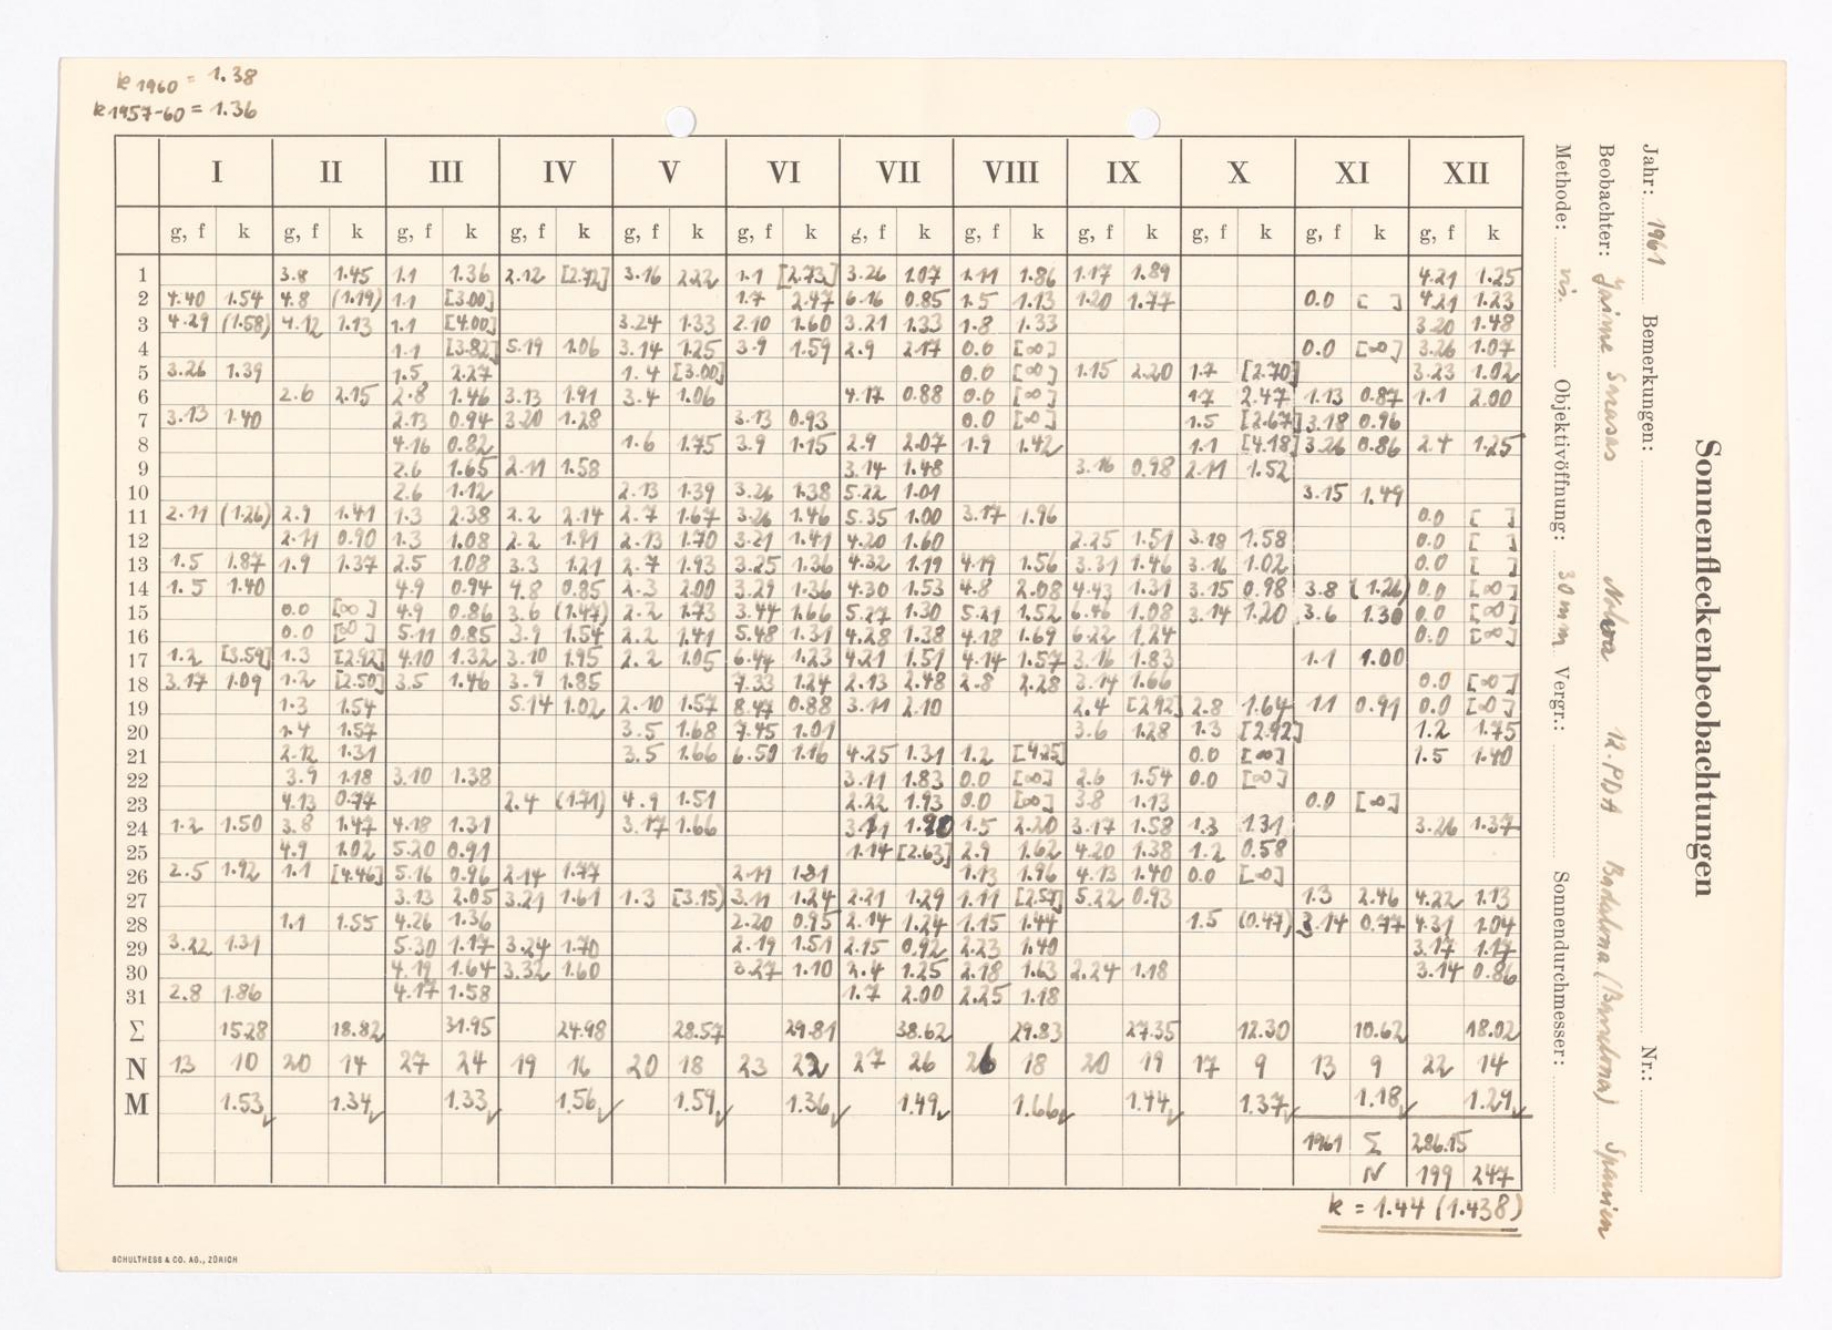 k 1960 = 1.38
k 1957-60 = 1.36
I II III IV V VI VII VIII IX X XI XII
g, f k g, f k g, f k g, f k g, f k g, f k g, f k g, f k g, f k g, f k g, f k g, f k
1 3.8 1.45 1.1 1.36 2.12 [2.72] 3.16 2.22 1.1 [2.73] 3.26 1.07 1.11 1.86 1.17 1.89 4.21 1.25
2 4.40 1.54 4.8 (1.19) 1.1 [3.00] 1.7 2.47 6.16 0.85 1.5 1.13 1.20 1.77 0.0 [ ] 4.21 1.23
3 4.29 (1.58) 4.12 1.13 1.1 [4.00] 3.24 1.33 2.10 1.60 3.21 1.33 1.8 1.33 3.20 1.48
4 1.1 [3.82] 5.19 1.06 3.14 1.25 3.9 1.59 2.9 2.17 0.0 [∞] 0.0 [∞] 3.26 1.07
5 3.26 1.39 1.5 2.27 1.4 [3.00] 0.0 [∞] 1.15 2.20 1.7 [2.70] 3.23 1.02
6 2.6 2.15 2.8 1.46 3.13 1.91 3.4 1.06 4.17 0.88 0.0 [∞] 1.7 2.47 1.13 0.87 1.1 2.00
7 3.13 1.40 2.13 0.94 3.20 1.28 3.13 0.93 0.0 [∞] 1.5 [2.67] 3.18 0.96
8 4.16 0.82 1.6 1.75 3.9 1.15 2.9 2.07 1.9 1.42 1.1 [4.18] 3.26 0.86 2.4 1.25
9 2.6 1.65 2.11 1.58 3.14 1.48 3.16 0.98 2.11 1.52
10 2.6 1.12 2.13 1.39 3.26 1.38 5.22 1.01 3.15 1.49
11 2.11 (1.26) 2.9 1.41 1.3 2.38 2.2 2.14 2.7 1.67 3.26 1.46 5.35 1.00 3.17 1.96 0.0 [ ]
12 2.11 0.90 1.3 1.08 2.2 1.91 2.13 1.70 3.21 1.41 4.20 1.60 2.25 1.51 3.18 1.58 0.0 [ ]
13 1.5 1.87 1.9 1.37 2.5 1.08 3.3 1.21 2.7 1.93 3.25 1.36 4.32 1.19 4.19 1.56 3.31 1.46 3.16 1.02 0.0 [ ]
14 1.5 1.40 4.9 0.94 4.8 0.85 2.3 2.00 3.29 1.36 4.30 1.53 4.8 2.08 4.43 1.31 3.15 0.98 3.8 (1.26) 0.0 [∞]
15 0.0 [∞] 4.9 0.86 3.6 (1.47) 2.2 1.73 3.44 1.66 5.27 1.30 5.21 1.52 6.46 1.08 3.14 1.20 3.6 1.30 0.0 [∞]
16 0.0 [∞] 5.11 0.85 3.9 1.54 2.2 1.41 5.48 1.31 4.28 1.38 4.18 1.69 6.22 1.24 0.0 [∞]
17 1.2 [3.59] 1.3 [2.92] 4.10 1.32 3.10 1.95 2.2 1.05 6.44 1.23 4.21 1.51 4.14 1.57 3.16 1.83 1.1 1.00
18 3.17 1.09 1.2 [2.50] 3.5 1.46 3.9 1.85 7.33 1.24 2.13 2.48 2.8 2.28 3.14 1.66 0.0 [∞]
19 1.3 1.54 5.14 1.02 2.10 1.57 8.47 0.88 3.11 2.10 2.4 [2.92] 2.8 1.64 1.1 0.91 0.0 [∞]
20 1.4 1.57 3.5 1.68 7.45 1.01 3.6 1.28 1.3 [2.92] 1.2 1.75
21 2.12 1.31 3.5 1.66 6.50 1.16 4.25 1.31 1.2 [4.25] 0.0 [∞] 1.5 1.40
22 3.9 1.18 3.10 1.38 3.11 1.83 0.0 [∞] 2.6 1.54 0.0 [∞]
23 4.13 0.77 2.4 (1.71) 4.9 1.51 2.22 1.93 0.0 [∞] 3.8 1.13 0.0 [∞]
24 1.2 1.50 3.8 1.47 4.18 1.31 3.17 1.66 1.5 2.20 3.17 1.58 1.3 1.31 3.26 1.37
25 4.9 1.02 5.20 0.91 1.14 [2.63] 2.9 1.62 4.20 1.38 1.2 0.58
26 2.5 1.92 1.1 [4.46] 5.16 0.96 2.14 1.77 2.11 1.31 1.13 1.96 4.13 1.40 0.0 [∞]
27 3.13 2.05 3.21 1.61 1.3 [3.15) 3.11 1.24 2.21 1.29 1.11 [2.57] 5.22 0.93 1.3 2.46 4.22 1.13
28 1.1 1.55 4.26 1.36 2.20 0.95 2.14 1.24 1.15 1.44 1.5 (0.47) 3.14 0.77 4.31 1.04
29 3.22 1.31 5.30 1.17 3.24 1.70 2.19 1.51 2.15 0.92 2.23 1.40 3.17 1.17
30 4.19 1.64 3.32 1.60 3.27 1.10 2.4 1.25 2.18 1.63 2.24 1.18 3.14 0.86
31 2.8 1.86 4.17 1.58 1.7 2.00 2.25 1.18
Σ 15.28 18.82 31.95 24.98 28.57 29.81 38.62 29.83 27.35 12.30 10.62 18.02
N 13 10 20 14 27 24 19 16 20 18 23 22 27 26 26 18 20 19 17 9 13 9 22 14
M 1.53 1.34 1.33 1.56 1.59 1.36 1.49 1.66 1.44 1.37 1.18 1.29
1961 Σ 286.15
N 199 247
k = 1.44 (1.438)
SCHULTHESS & CO. AG., ZÜRICH
Sonnenfleckenbeobachtungen
Jahr: 1961 Bemerkungen: Nr.:
Beobachter: Jaime 12.PDA Badalona (Barcelona) Spanien
Methode: vis. Objektivöffnung: 30mm Vergr.: Sonnendurchmesser: